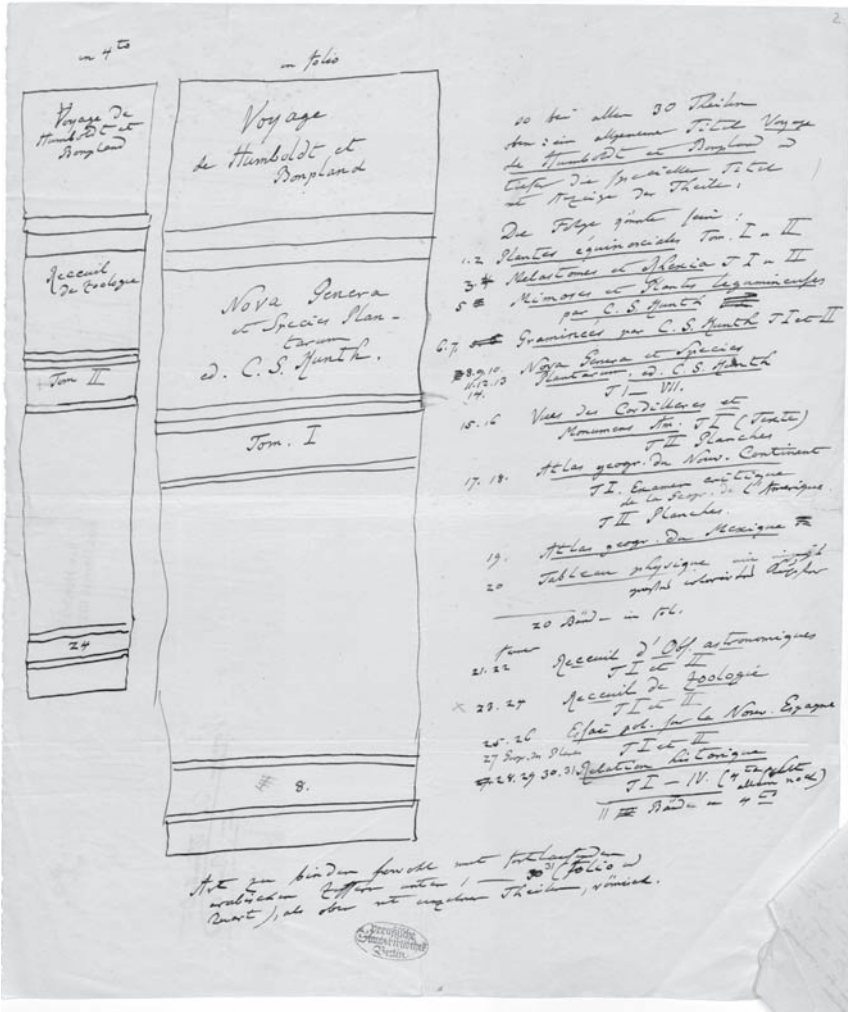 2
in 4to
Voyage de
Humboldt et
Bonpland
Recueil
de Zoologie
Tom II
24
in folio
Voyage
de Humboldt et
Bonpland
Nova Genera
et Species Plan-
tarum
ed. C. S. Kunth.
Tom. I
8.
so bei allen 30 Theilen
oben: ein allgemeiner Titel Voyage
de Humboldt et Bonpland
tiefer die speciellen Titel
Anzeige der Theile:
Die Folge könnte sein:
1.2 Plantes équinoxiales Tom. I u II
3. 4 Melastomes et Rhexia T I u II
5 Mimoses et Plantes legumineuses
par C. S. Kunth
6.7. Graminees par C. S. Kunth T I et II
8.9.10 Nova Genera et Species
11.12.13 Plantarum, ed. C. S. Kunth
14. T I — VII.
15.16 Vues des Cordilleres et
Monumens Am. T I (Texte)
T II Planches
17. 18. Atlas geogr. du Nouv. Continent
T I. Examen critique
de la Geogr. de l'Amerique.
T II Planches.
19. Atlas geogr. du Mexique
20 Tableau physique
20 Bände in fol.
ferner
21.22 Recueil d'Obs. astronomiques
T I et II
23. 24 Recueil de Zoologie
T I et II
25. 26 Essai pol. sur la Nouv. Espagne
T I et II
27 Geogr. des Plantes
28. 29 30. 31 Relation historique
T I — IV. (4te fehlt
allein noch)
11 Bände in 4to
Art zu binden sowohl mit fortlaufenden
arabischen Ziffern unten 1 — 31 (folio u
Quart), als oben mit einzelnen Theilen, römisch.
Preußische
Staatsbibliothek
Berlin